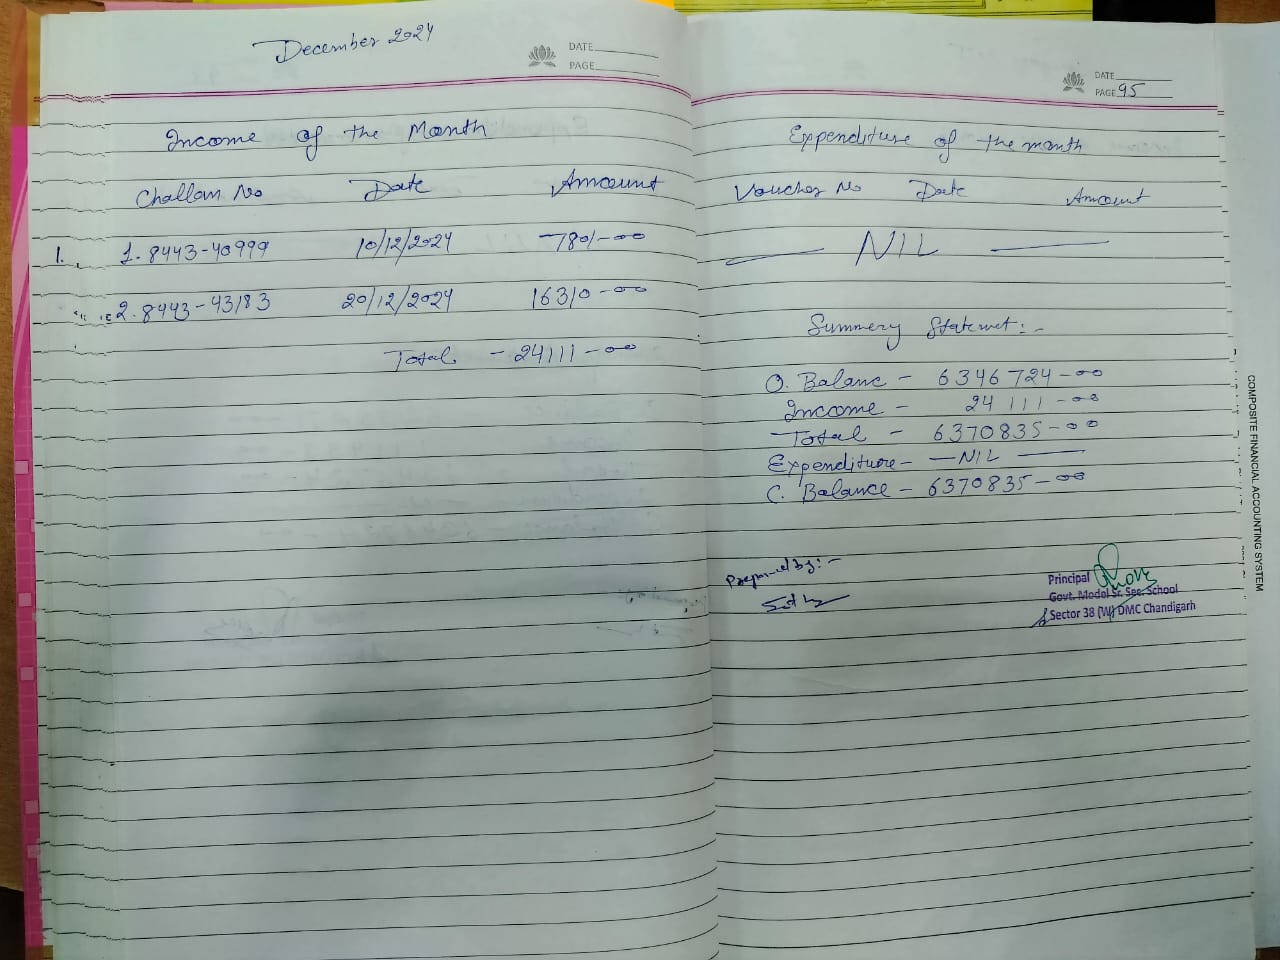 December 2024
DATE
PAGE
Income of the Month
Challan No Date Amount
1. 1. 8443-40999 10/12/2024 7801-00
2. 8443-43183 20/12/2024 16310-00
Total - 24111-00
DATE
PAGE 95
Expenditure of the month
Voucher No Date Amount
— NIL —
Summery Statemet:-
O. Balanc - 6346724-00
Income - 24111-00
Total - 6370835-00
Expenditure - — NIL —
C. Balance - 6370835-00
Prepared by:-
Principal
Govt. Model Sr. Sec. School
Sector 38 (W) DMC Chandigarh
COMPOSITE FINANCIAL ACCOUNTING SYSTEM